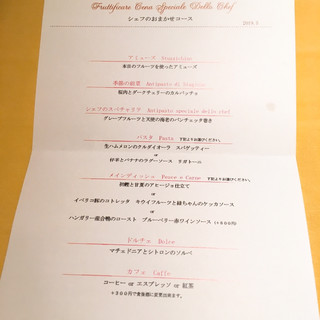 Fruttificare Cena Speciale Dello Chef
シェフのおまかせコース
2019.5
アミューズ Stuzzichino
本日のフルーツを使ったアミューズ
季節の前菜 Antipasto di Stagione
桜肉とダークチェリーのカルパッチョ
シェフのスペチャリテ Antipasto speciale dello chef
グレープフルーツと天使の海老のパンチェッタ巻き
パスタ Pasta 下記よりお選びください。
生ハムメロンのクルダイオーラ スパゲッティー
or
仔羊とバナナのラグーソース リガトーニ
メインディッシュ Pesce o Carne 下記よりお選びください。
初鰹と甘夏のアヒージョ仕立て
or
イベリコ豚のコトレッタ キウイフルーツと緑ちゃんのケッカソース
or
ハンガリー産合鴨のロースト ブルーベリー赤ワインソース
ドルチェ Dolce
マチェドニアとシトロンのソルベ
カフェ Caffe
コーヒー or エスプレッソ or 紅茶
+300円で食後酒に変更出来ます。